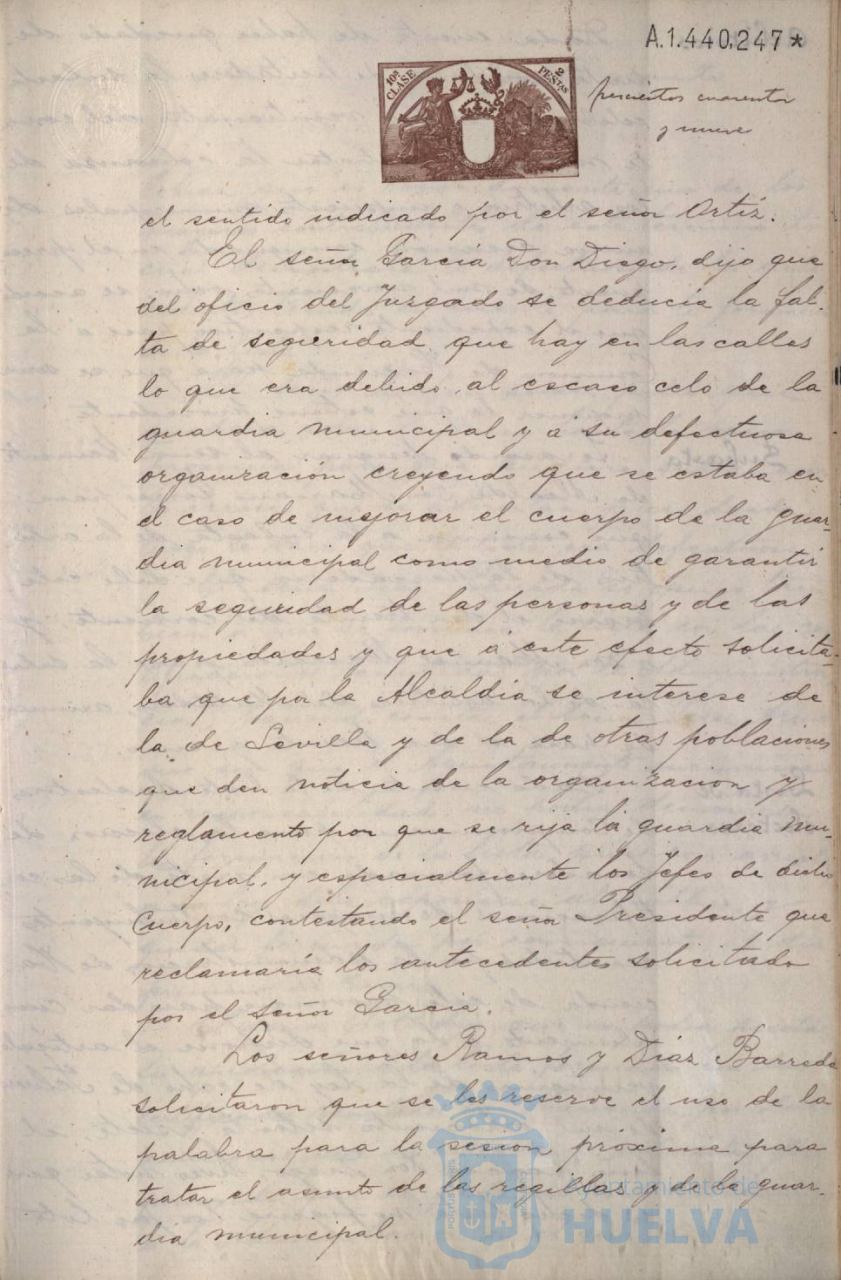 A.1.440,247*
10ª CLASE 2 PESTAS
cuarenta
y nueve
el sentido indicado por el señor Ortíz.
El señor García Don Diego, dijo que
del oficio del Juzgado se deducía la fal-
ta de seguridad que hay en las calles
lo que era debido, al escaso celo de la
guardia municipal y á su defectuosa
organización creyendo que se estaba en
el caso de mejorar el cuerpo de la guar-
dia municipal como medio de garantir
la seguridad de las personas y de las
propiedades y que á este efecto solicita-
ba que por la Alcaldía se interese de
la de Sevilla y de la de otras poblaciones
que den noticia de la organizacion y
reglamento por que se rija la guardia mu-
nicipal, y especialmente los Jefes de dicho
Cuerpo, contestando el señor Presidente que
reclamaría los antecedentes solicitado
por el señor Garcia.
Los señores Ramos y Díaz Barreda
solicitaron que se les reserve el uso de la
palabra para la sesion próxima para
tratar el asunto de las regillas y de la guar-
dia municipal.
Ayuntamiento de
HUELVA